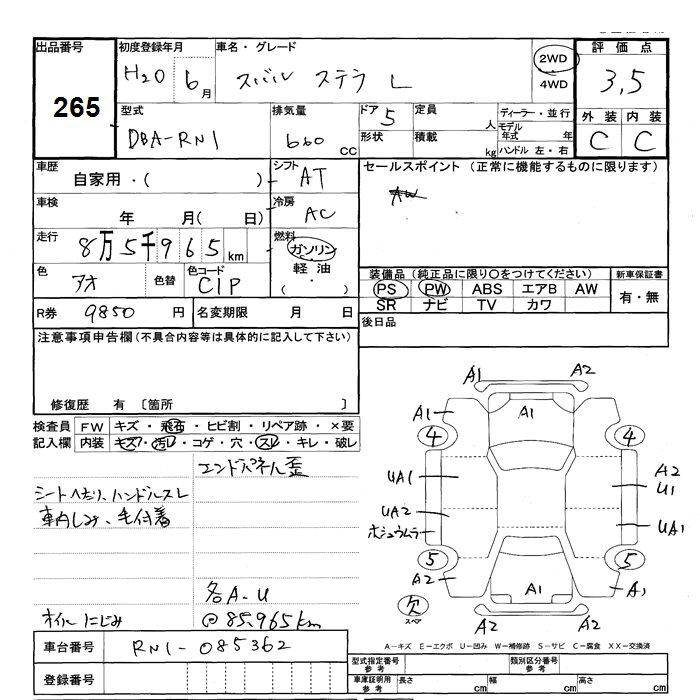 出品番号 初度登録年月 車名・グレード 評価点
265 H20 6月 スバル ステラ L 2WD 4WD 3,5
型式 排気量 ドア 5 定員 人 ディーラー・並行 外装 内装
DBA-RN1 660 CC 形状 積載 kg モデル年式 年 ハンドル 左・右 C C
車歴 自家用・( ) シフト AT セールスポイント (正常に機能するものに限ります)
AW
車検 年 月( 日) 冷房 AC
走行 8万5千965km 燃料 ガソリン 軽油 ( ・ )
色 アオ 色替 色コード C1P
装備品 (純正品に限り○をつけてください) 新車保証書
PS PW ABS エアB AW 有・無
SR ナビ TV カワ
R券 9850 円 名変期限 月 日 後日品
注意事項申告欄 (不具合内容等は具体的に記入して下さい)
修復歴 有 〔箇所 〕
検査員 FW キズ・飛石・ヒビ割・リペア跡・×要
記入欄 内装 キズ・汚レ・コゲ・穴・スレ・キレ・破レ
エンドパネル歪
シートヘタリ、ハンドルスレ
車内しみ、毛付着
各A-U
オイルにじみ @85,965km
A1 A2
A1 A1
4 4
UA1 A2 U1
UA2 UA1
ボシュウムラ
5 5
A2 A1 A1
欠 スペア A2 A2
車台番号 RN1-085362
登録番号
A-キズ E-エクボ U-凹み W-補修跡 S-サビ C-腐食 XX-交換済
型式指定番号 参考 類別区分番号 参考
車庫証明用 参考 長さ cm 幅 cm 高さ cm